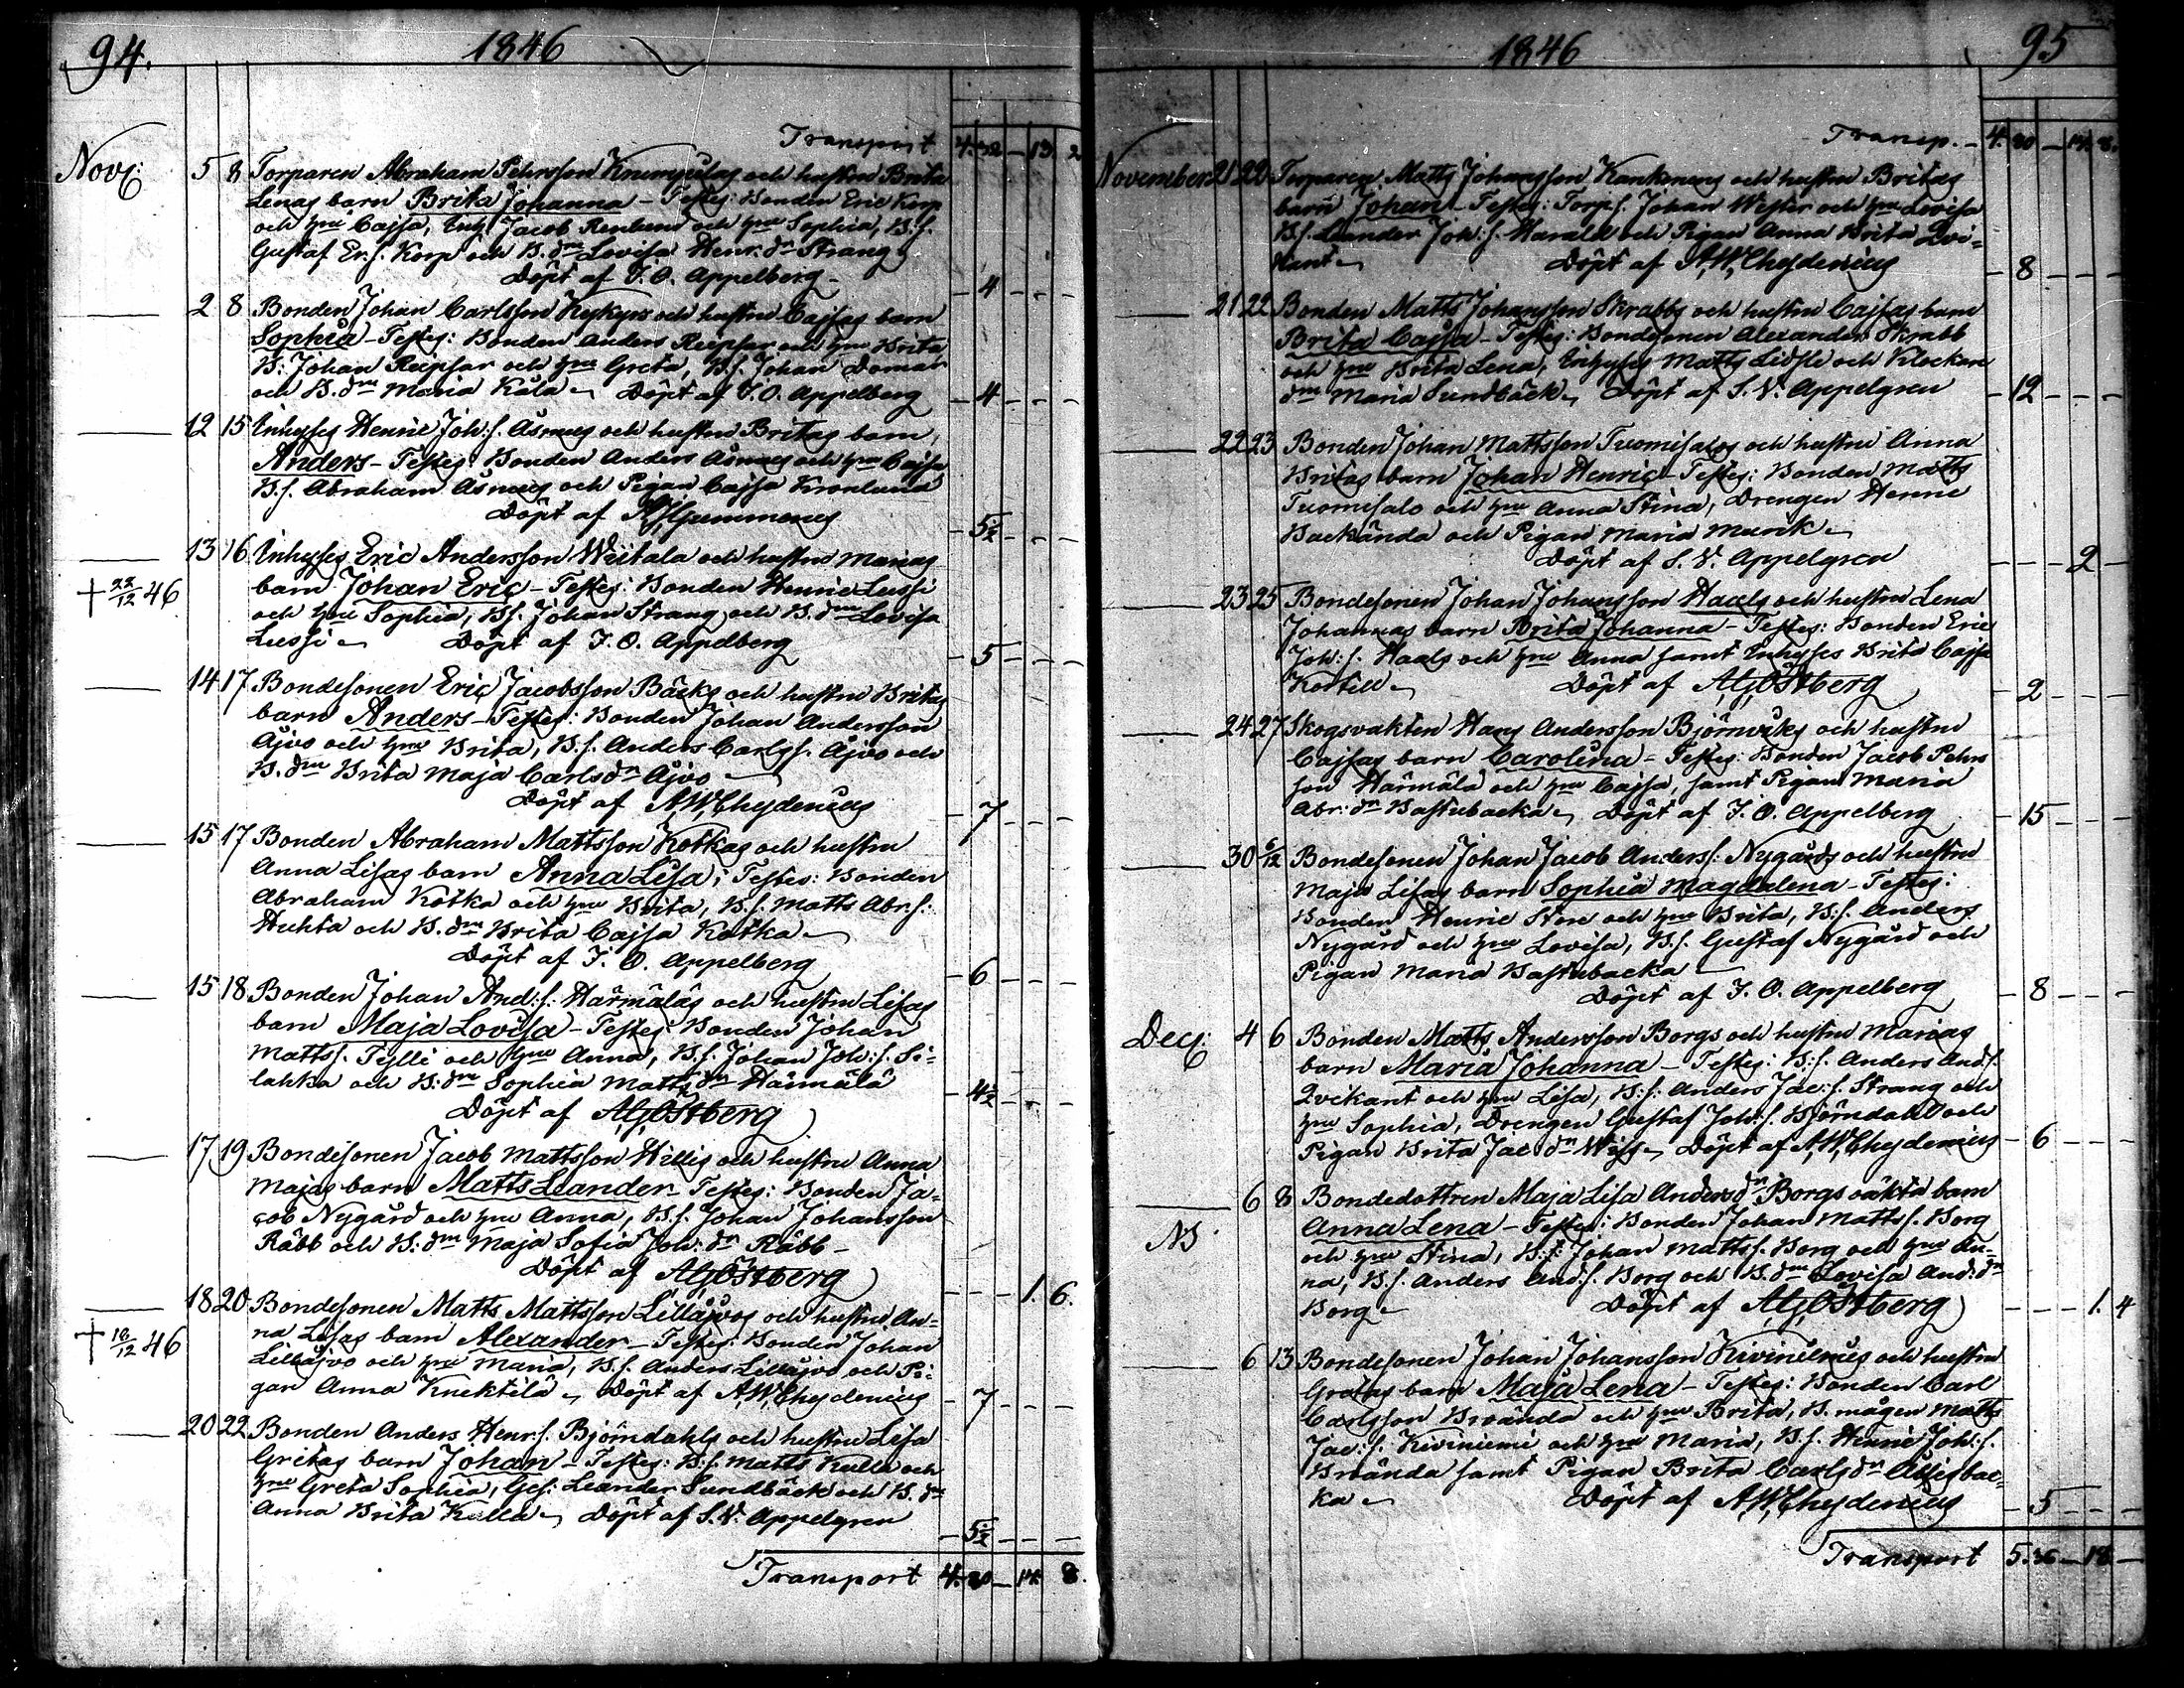 94. 1846
Transport 4. 32 – 13. 2
Nov: 5 8 Torparen Abraham Pehrsson och hustru Brita
Lenas barn Brita Johanna – Testes: Bonden Eric Korp
och hru Cajsa, Inh: Jacob Renlund och hru Sophia, B.s.
Gustaf Er.s. Korp och B. dn Lovisa Henr. dr Strang
Döpt af J. O. Appelberg – 4 – – –
2 8 Bonden Johan Carlsson och hustru Cajsas barn
Sophia – Testes: Bonden Anders Reipsar och hru Brita
B: Johan Reipsar och hru Greta, B.s. Johan Domar
och B. dn Maria Kåla Döpt af J. O. Appelberg – 4 – – –
12 15 Inhyses Henric Joh:s. Åsnäs och hustru Britas barn,
Anders – Testes: Bonden Anders Åsnäs och hru Cajsa
B.s. Abraham Åsnäs och Pigan Cajsa Kronlund
Döpt af – 5½ – – –
13 16 Inhyses Eric Andersson Weitala och hustru Marias
† 22/12 46 barn Johan Eric – Testes: Bonden Henric Lussi
och hru Sophia, B.s. Johan Strang och B. dn Lovisa
Lussi Döpt af J. O. Appelberg – 5 – – –
14 17 Bondesonen Eric Jacobsson Bäcks och hustru Britas
barn Anders – Testes: Bonden Johan Andersson
Åjvo och hru Brita, B.s. Anders Carlss. Åjvo och
B. dn Brita Maja Carlsdr Åjvo
Döpt af A.W. Chydenius – 7 – – –
15 17 Bonden Abraham Mattsson Kotkas och hustru
Anna Lisas barn Anna Lisa; Testes: Bonden
Abraham Kotka och hru Brita, B.s. Matts Abr.s.
Huhta och B. dn Brita Cajsa Kotka
Döpt af J. O. Appelberg – 6 – – –
15 18 Bonden Johan And:s. Härmäläs och hustru Lisas
barn Maja Lovisa – Testes: Bonden Johan
Mattss. Tylli och hru Anna, B.s. Johan Joh:s. Si-
lahka och B: dn Sophia Matts dr Härmälä – 4½ – – –
Döpt af A.G. Östberg
17 19 Bondesonen Jacob Mattsson Willis och hustru Anna
Majas barn Matts Leander – Testes: Bonden Ja-
cob Nygård och hru Anna, B.s. Johan Johansson
Räbb och B: dn Maja Sofia Joh: dr Räbb –
Döpt af A.G. Östberg – – – 1. 6.
18 20 Bondesonen Matts Mattsson Lillåjvos och hustru An-
† 18/12 46 na Lisas barn Alexander – Testes: Bonden Johan
Lillåjvo och hru Maria, B.s. Anders Lillåjvo och Pi-
gan Anna Knektilä Döpt af A.W. Chydenius – 7 – – –
20 22 Bonden Anders Henr.s. Björndahls och hustru Lisa
Gretas barn Johan – Testes: B.s. Matts Kulla och
hru Greta Sophia, Ges: Leander Sundbäck och B. dn
Anna Brita Kulla Döpt af S. W. Appelgren
– 5½ – – –
Transport 4. 20 – 14. 8.
1846 95
Transp. – 4. 20 – 14. 8.
November 21 22 Torparen Matts Johansson och hustru Britas
barn Johan – Testes: Torp.s. Johan Wester och hru Lovisa
B.s. Leander Joh:s. Harald och Pigan Anna Brita Qvi-
kant Döpt af A.W. Chydenius – 8 – – –
21 22 Bonden Matts Johansson Skrabbs och hustru Cajsas barn
Brita Cajsa – Testes: Bondesonen Alexander Skrabb
och hru Brita Lena, Inhyses Matts och Klockare
dn Maria Sundbäck Döpt af S. W. Appelgren – 12 – – –
22 23 Bonden Johan Mattsson Tuomisalos och hustru Anna
Britas barn Johan Henric – Testes: Bonden Matts
Tuomisalo och hru Anna Stina, Drengen Henric
Backända och Pigan Maria Munk
Döpt af S. W. Appelgren – – – 2 –
23 25 Bondesonen Johan Johansson Haals och hustru Lena
Johannas barn Brita Johanna – Testes: Bonden Eric
Joh:s. Haals och hru Anna samt Inhyses Brita Cajsa
Kortell Döpt af A.G. Östberg – 2 – – –
24 27 Skogsvakten Hans Andersson Björnviks och hustru
Cajsas barn Carolina – Testes: Bonden Jacob Pehrs
son Härmälä och hru Cajsa, samt Pigan Maria
Abr: dr Bastubacka Döpt af J. O. Appelberg – 15 – – –
30 6/12 Bondesonen Johan Jacob Anderss. Nygårds och hustru
Maja Lisas barn Sophia Magdalena – Testes:
Bonden Henric Store och hru Brita, B.s. Anders
Nygård och hru Lovisa, B.s. Gustaf Nygård och
Pigan Maria Bastubacka
Döpt af J. O. Appelberg – 8 – – –
Dec: 4 6 Bonden Matts Andersson Borgs och hustru Marias
barn Maria Johanna – Testes: B:s. Anders And.s.
Qvikant och hru Lisa, B:s. Anders Jac:s. Strang och
hru Sophia, Drengen Gustaf Joh:s. Björndahl och
Pigan Brita Jac dr Wiss Döpt af A.W. Chydenius – 6 – – –
6 8 Bondedottren Maja Lisa Andersdr Borgs oäkta barn
NB Anna Lena – Testes: Bonden Johan Mattss. Borg
och hru Stina, B:s. Johan Mattss. Borg och hru An-
na, B.s. Anders And.s. Borg och B. dn Lovisa And: dr
Borg Döpt af A.G. Östberg – – – 1. 4
6 13 Bondesonen Johan Johansson Kiviniemis och hustru
Gretas barn Maja Lena – Testes: Bonden Carl
Carlsson Brända och hru Brita, B. mågen Matts
Jac:s. Kiviniemi och hru Maria, B.s. Henric Joh:s.
Brända samt Pigan Brita Carlsdr Abbisbac-
ka Döpt af A.W. Chydenius – 5 – – –
Transport 5. 26 – 18 –